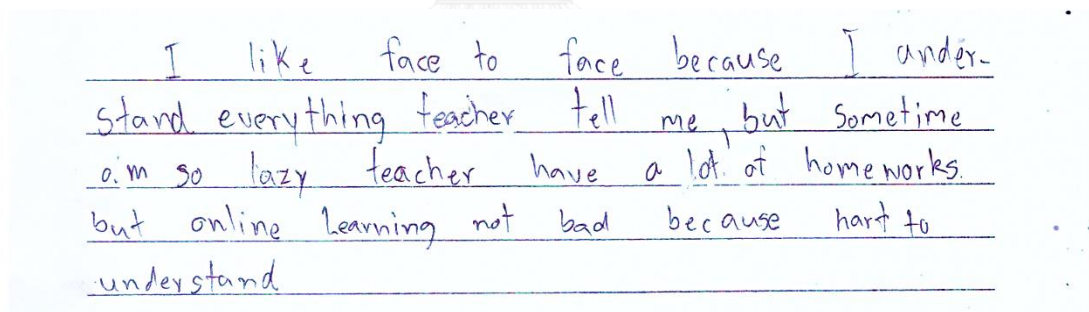 I like face to face because I under-
stand everything teacher tell me, but sometime
a.m so lazy teacher have a lot of homeworks.
but online Learning not bad because hart to
understand